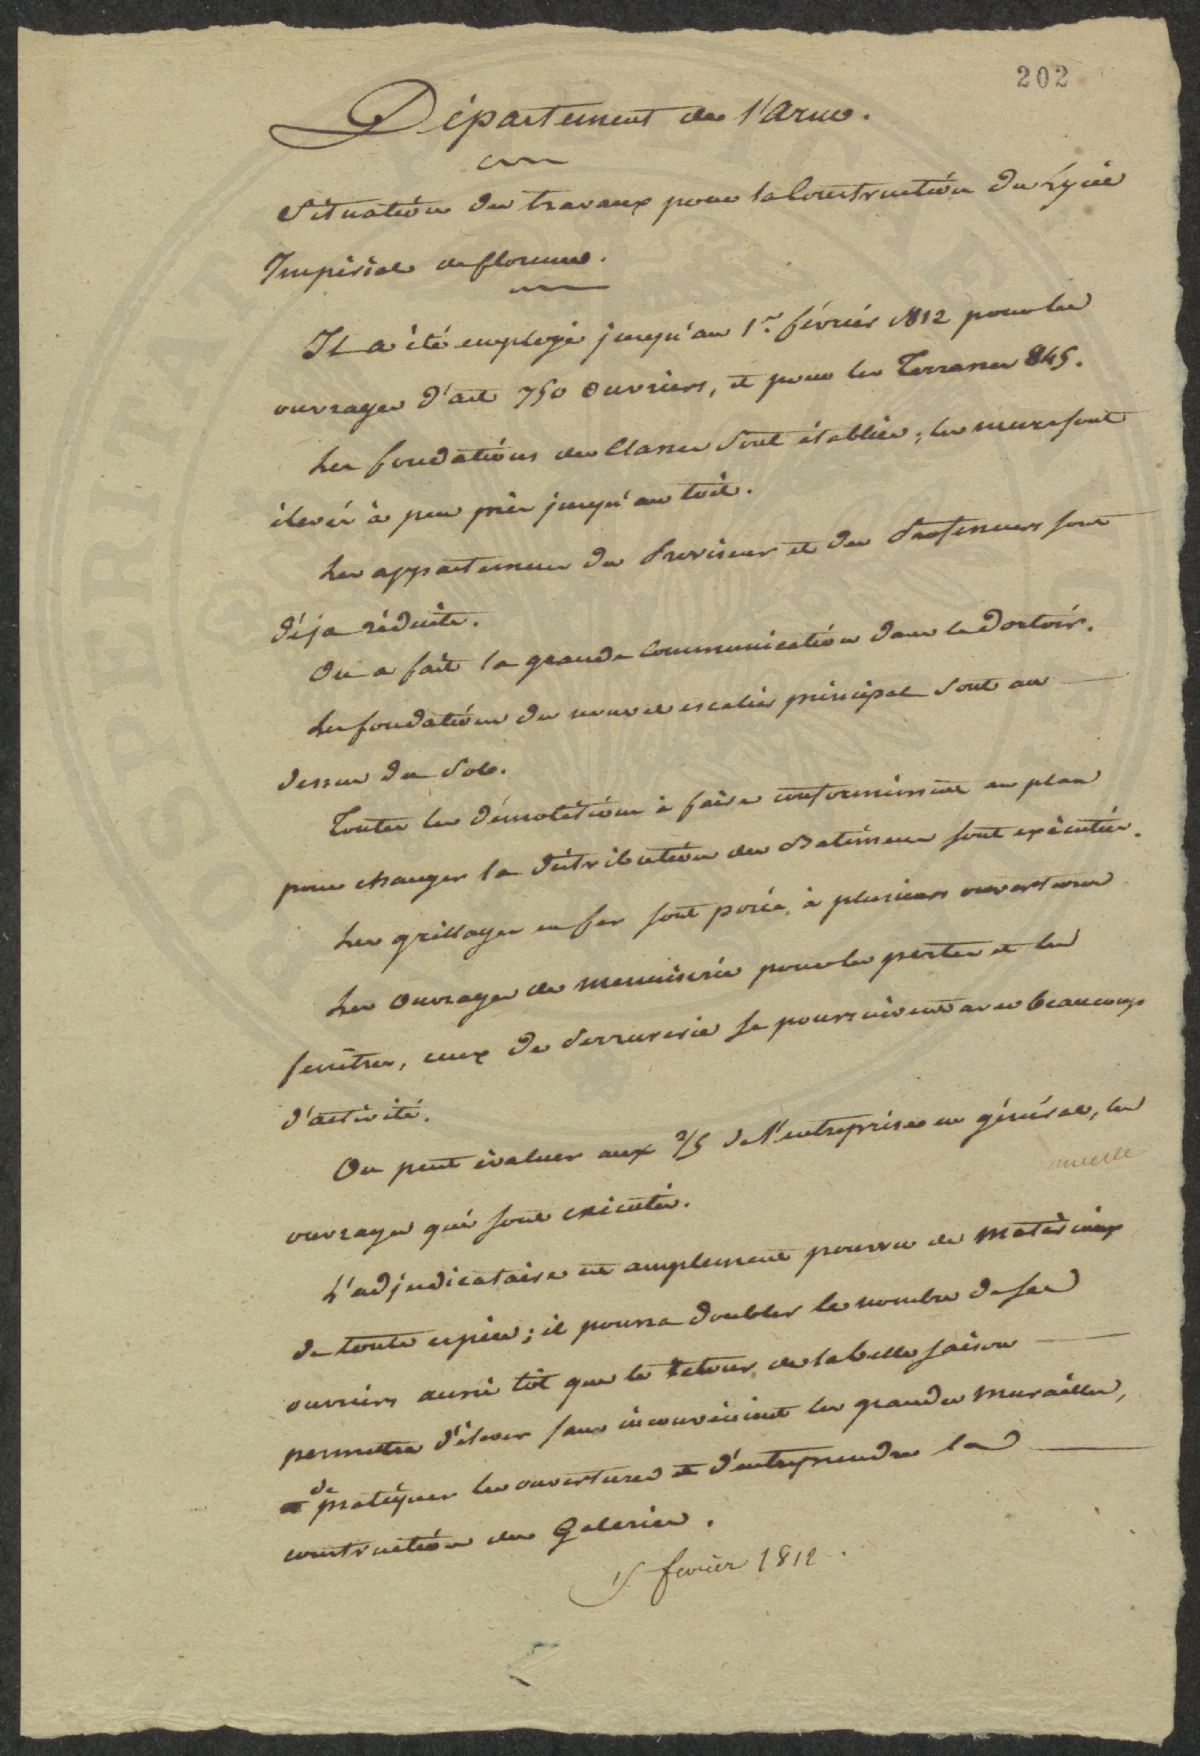 202
Département de l'Arno.
Situation des travaux pour la Construction du Lycée
Impérial de florence.
Il a été employé jusqu'au 1er février 1812 pour les
ouvrages d'art 750 Ouvriers, et pour les Terrasses 845.
Les fondations des Classes sont établies; les murs sont
élevés à peu près jusqu'au toit.
Les appartemens du Proviseur et des Professeurs sont
déja réduits.
On a fait la grande Communication dans le Dortoir.
Les fondations du nouvel escalier principal sont au
dessus du Sol.
Toutes les démolitions à faire conformément au plan
pour changer la distribution des Batimens sont exécutées.
Les grillages en fer sont posés à plusieurs ouvertures
Les Ouvrages de menuiserie pour les portes et les
fenêtres, ceux de Serrurerie se poursuivent avec beaucoup
d'activité.
On peut évaluer aux 2/5 de l'entreprise en général, les
ouvrages qui sont exécutés.
L'adjudicataire est amplement pourvu de matériaux
de toute espèce; il pourra doubler le nombre de ses
ouvriers aussi tôt que le retour de la belle saison
permettra d'élever sans inconvénient les grandes murailles,
de pratiquer les ouvertures et d'entreprendre la
construction des Galeries.
15 fevrier 1812.